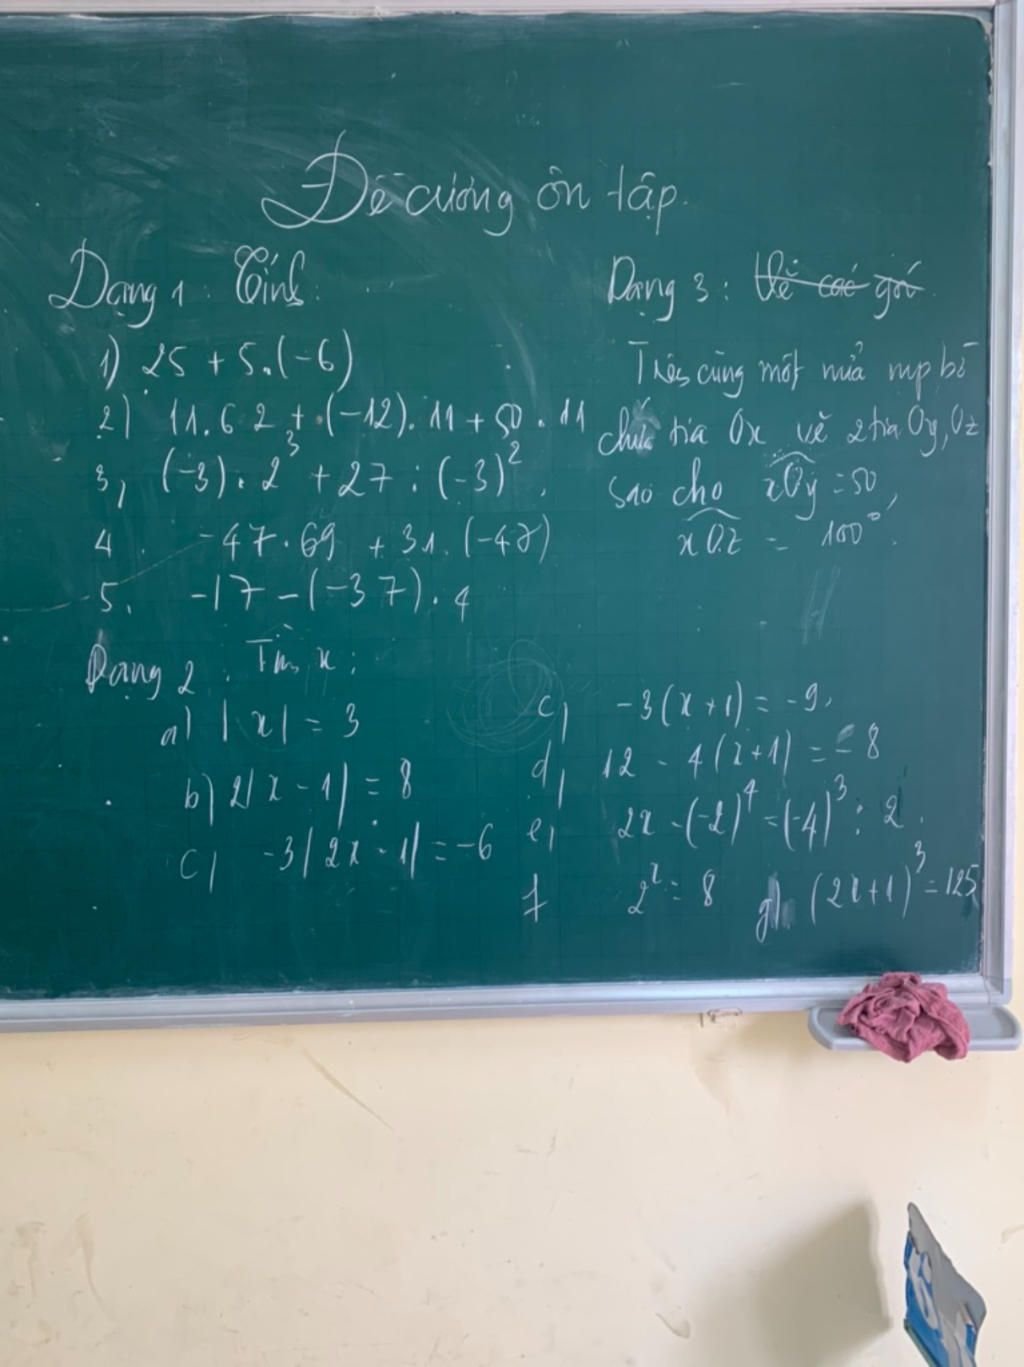 Đề cương ôn tập.
Dạng 1: Tính:
1) 25 + 5.(-6)
2) 11.62 + (-12).11 + 50.11
3, (-3).2³ + 27 : (-3)²,
4. -47.69 + 31.(-47)
5. -17 - (-37).4
Dạng 2: Tìm x:
a) |x| = 3
b) 2|x - 1| = 8
c) -3|2x - 1| = -6
c, -3(x+1) = -9,
d, 12 - 4(x+1) = -8
e, 2x - (-2)⁴ = (-4)³ : 2.
f 2ˣ = 8 g) (2x+1)³ = 125
Dạng 3: Vẽ các góc
Trên cùng một nửa mp bờ
chứa tia Ox vẽ 2 tia Oy, Oz
sao cho xOy = 50,
xOz = 100°.